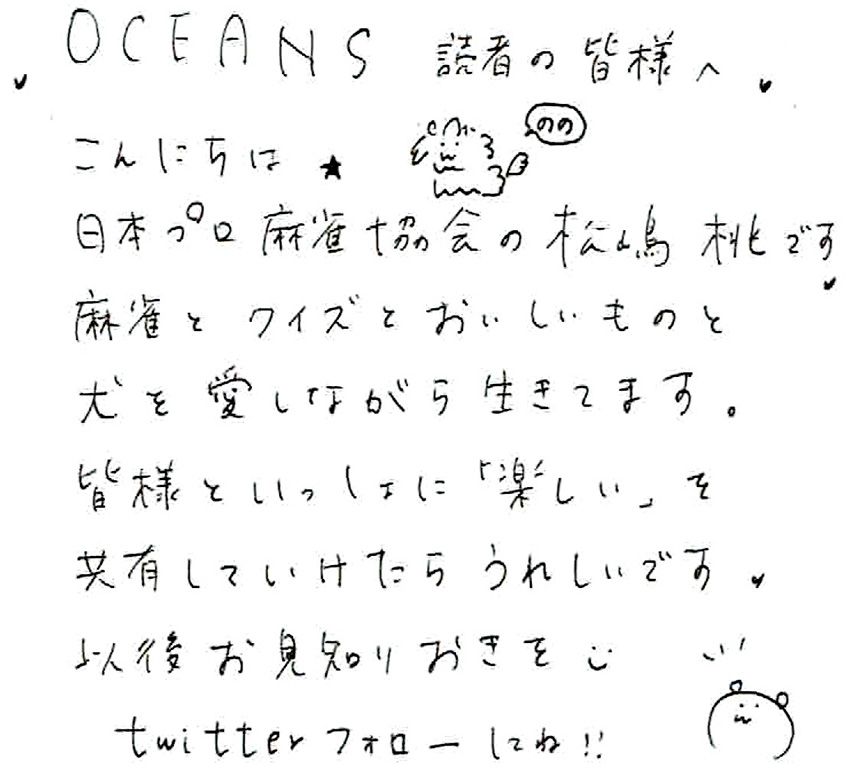 OCEANS 読者の皆様へ
こんにちは★
のの
日本プロ麻雀協会の松嶋桃です
麻雀とクイズとおいしいものと
犬を愛しながら生きてます。
皆様といっしょに「楽しい」を
共有していけたらうれしいです♥
以後お見知りおきを
twitterフォローしてね!!